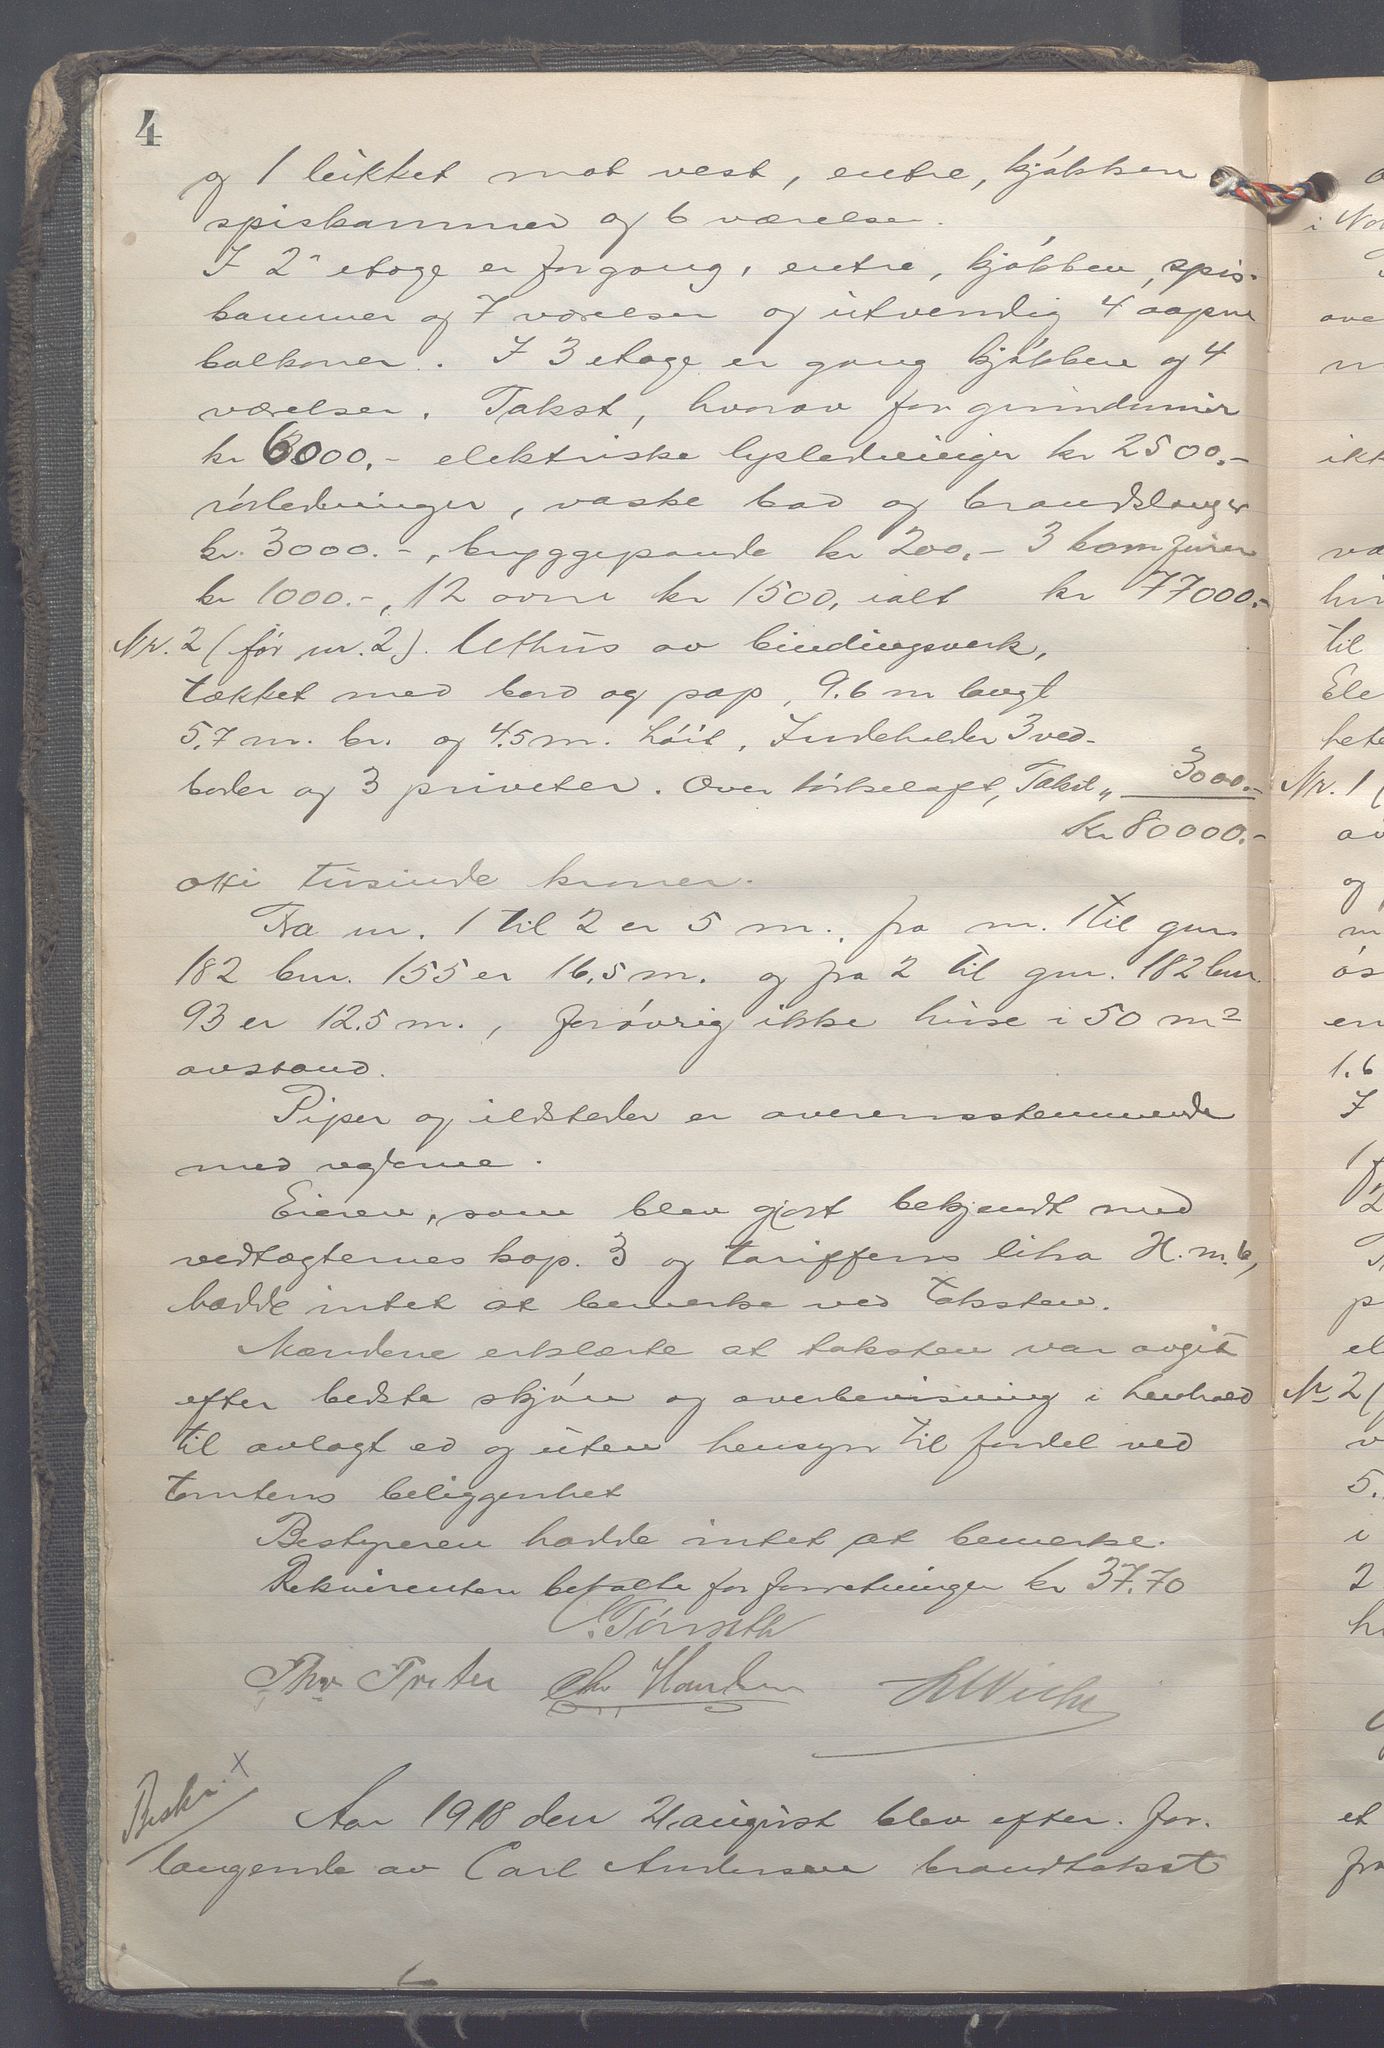 4
og 1 lukket mot vest, entre, kjøkken
spiskammer og 6 værelser.
I 2' etage er forgang, entre, kjøkken, spis-
kammer og 7 værelser og utvendig 4 aapne
balkoner. I 3 etage er gang kjøkken og 4
værelser. Takst, hvorav for grundmur
kr 6000.- elektriske lysledninger kr 2500.-
rørledninger, vaske bad og brandslanger
kr. 3000.-, bryggepande kr 200.- 3 komfurer
kr 1000.-, 12 ovne kr 1500, ialt kr 77000.-
Nr. 2 (før nr. 2). Uthus av bindingsverk,
tækket med bord og pap, 9.6 m langt
5.7 m. br. og 4.5 m. høit. Indeholder 3 ved-
boder og 3 priveter. Over tørkeloft, Takst „ 3000.-
Kr 80000.-
otti tusinde kroner.
Fra nr. 1 til 2 er 5 m., fra nr. 1 til gnr.
182 bnr. 155 er 16,5 m. og fra 2 til gnr. 182 bnr.
93 er 12.5 m., forøvrig ikke huse i 50 m²
avstand.
Piper og ildsteder er overensstemmende
med reglerne.
Eieren, som blev gjort bekjendt med
vedtægternes kap. 3 og tariffens litra H. m. 6,
hadde intet at bemerke ved taksten.
Mændene erklærte at taksten var avgit
efter bedste skjøn og overbevisning i henhold
til avlagt ed og uten hensyn til fordel ved
tomtens beliggenhet
Bestyreren hadde intet at bemerke.
Rekvirenten betalte for forretningen kr 37.70
Thv
Beskr. x
Aar 1918 den 21 august blev efter. for-
langende av Carl Andersen brandtakst